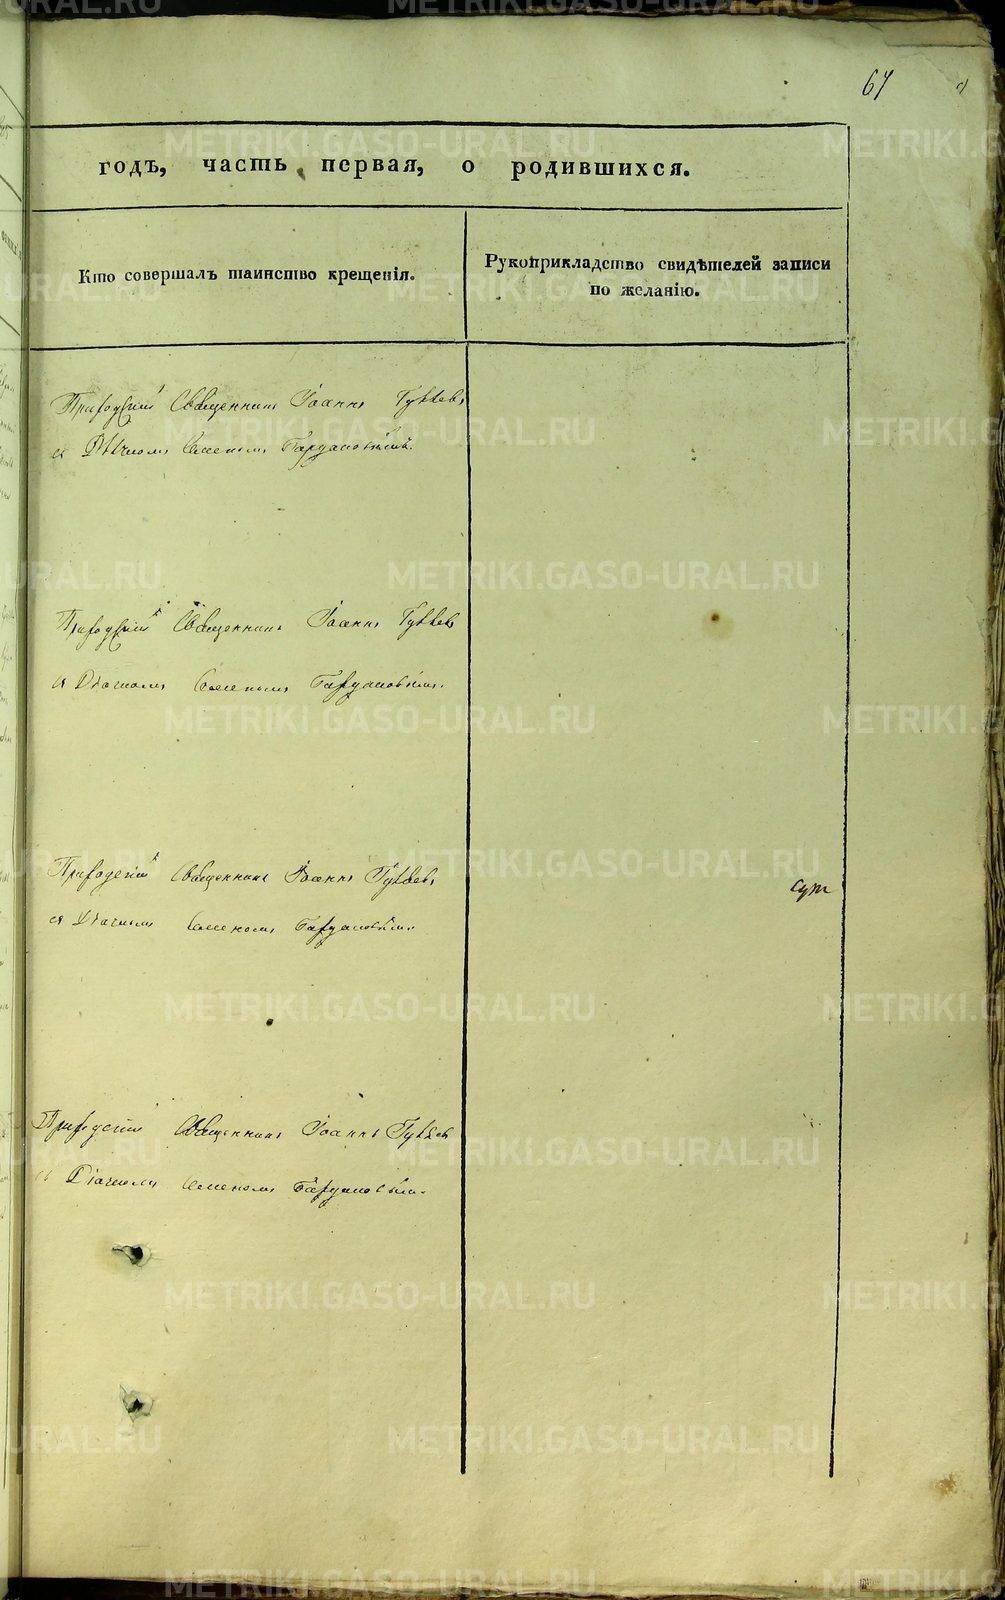 67
годъ, часть первая, о родившихся.
Кто совершалъ таинство крещенія.
Рукоприкладство свидѣтелей записи по желанію.
Приходскій Священникъ Іоаннъ
съ Дьячкомъ Семеномъ
Приходскій Священникъ Іоаннъ
съ Дьячкомъ Семеномъ
Приходскій Священникъ Іоаннъ
съ Дьячкомъ Семеномъ
Приходскій Священникъ Іоаннъ
съ Дьячкомъ Семеномъ
METRIKI.GASO-URAL.RU